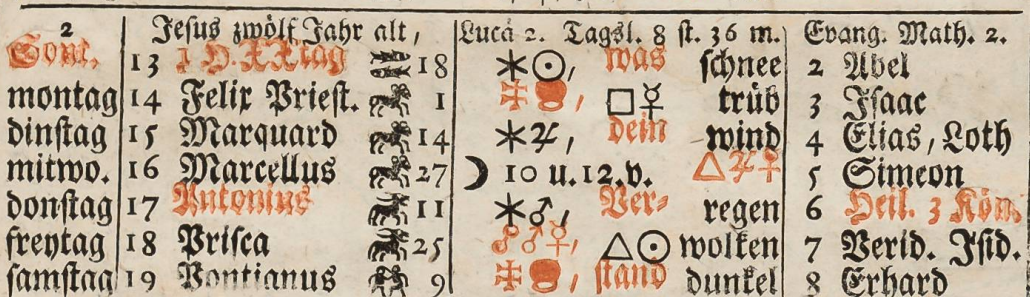 2 Jesus zwölf Jahr alt, Lucä 2. Tagsl. 8 st. 36 m. Evang. Math. 2.
Sont. 13 18 ⚹☉, was schnee 2 Abel
montag 14 Felix Priest. 1 □☿ trüb 3 Isaac
dinstag 15 Marquard 14 ⚹♃, dein wind 4 Elias, Loth
mitwo. 16 Marcellus 27 ☽ 10 u. 12. v. △♃♀ 5 Simeon
donstag 17 Antonius 11 ⚹♂, Ver- regen 6 Heil. 3 Kön.
freytag 18 Prisca 25 ♂♀, △☉ wolken 7 Verid. Isid.
samstag 19 Pontianus 9 stand dunkel 8 Erhard